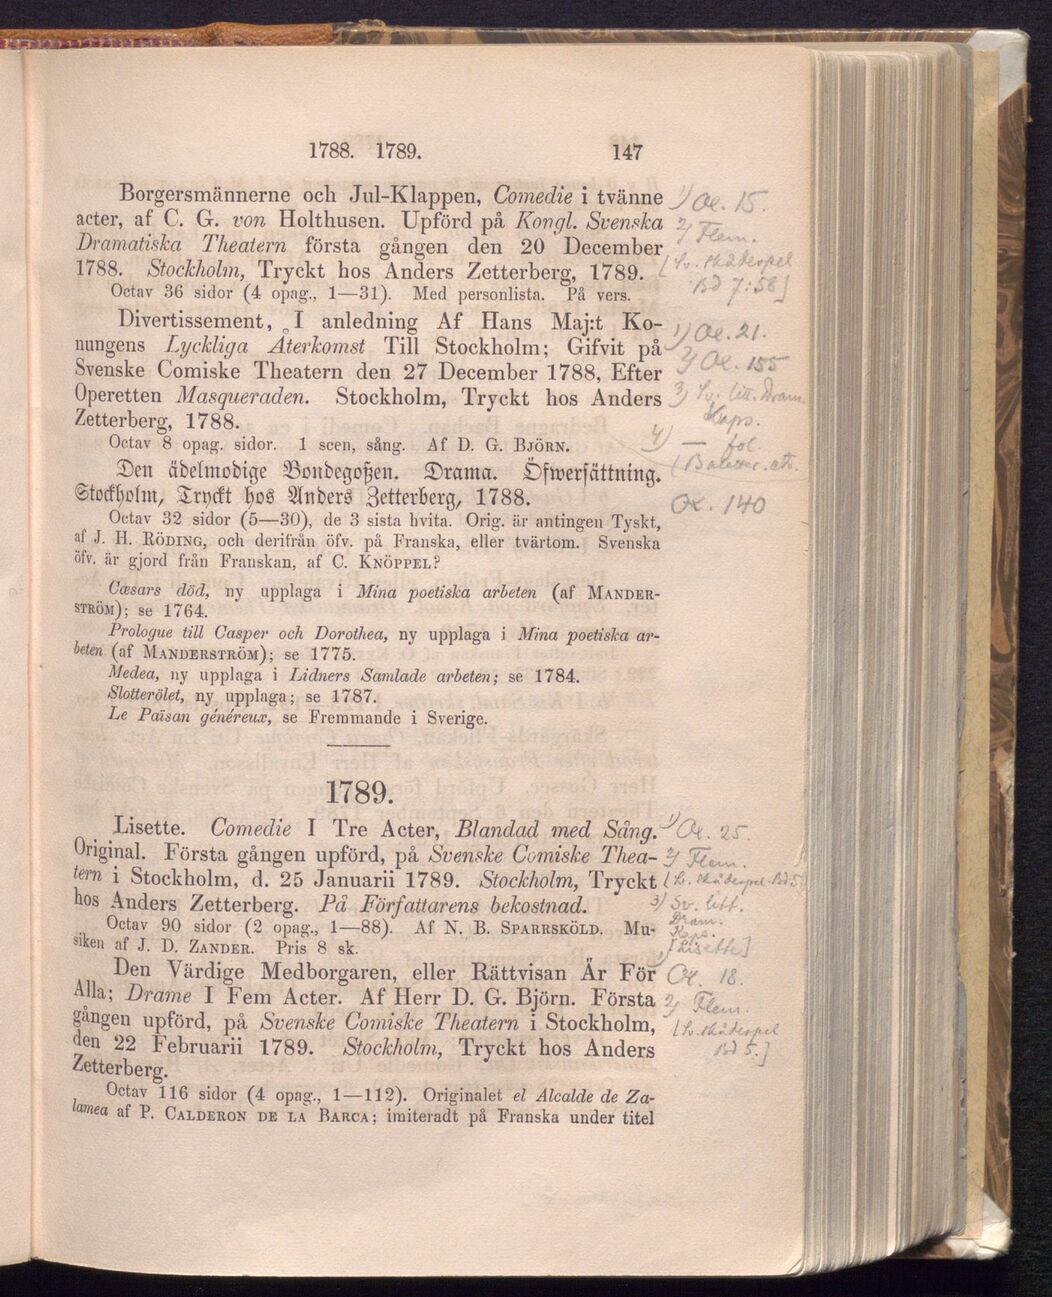 1788. 1789. 147
Borgersmännerne och Jul-Klappen, Comedie i tvänne
acter, af C. G. von Holthusen. Upförd på Kongl. Svenska
Dramatiska Theatern första gången den 20 December
1788. Stockholm, Tryckt hos Anders Zetterberg, 1789.
Octav 36 sidor (4 opag., 1—31). Med personlista. På vers.
1) Oe. 15.
2) Flem.
[Sv. skådespel
Bd 7:58]
Divertissement, I anledning Af Hans Maj:t Ko-
nungens Lyckliga Återkomst Till Stockholm; Gifvit på
Svenske Comiske Theatern den 27 December 1788, Efter
Operetten Masqueraden. Stockholm, Tryckt hos Anders
Zetterberg, 1788.
Octav 8 opag. sidor. 1 scen, sång. Af D. G. Björn.
1) Oe. 21.
2) Oe. 155
3) Sv. litt. Dram.
Kaps.
4) — fol.
(Baletter. etc.
Den ädelmodige Bondegoßen. Drama. Öfwersättning.
Stockholm, Tryckt hos Anders Zetterberg, 1788.
Octav 32 sidor (5—30), de 3 sista hvita. Orig. är antingen Tyskt,
af J. H. Röding, och derifrån öfv. på Franska, eller tvärtom. Svenska
öfv. är gjord från Franskan, af C. Knöppel?
Oe. 140
Cæsars död, ny upplaga i Mina poetiska arbeten (af Mander-
ström); se 1764.
Prologue till Casper och Dorothea, ny upplaga i Mina poetiska ar-
beten (af Manderström); se 1775.
Medea, ny upplaga i Lidners Samlade arbeten; se 1784.
Slotterölet, ny upplaga; se 1787.
Le Païsan généreux, se Fremmande i Sverige.
1789.
Lisette. Comedie I Tre Acter, Blandad med Sång.
Original. Första gången upförd, på Svenske Comiske Thea-
tern i Stockholm, d. 25 Januarii 1789. Stockholm, Tryckt
hos Anders Zetterberg. På Författarens bekostnad.
Octav 90 sidor (2 opag., 1—88). Af N. B. Sparrsköld. Mu-
siken af J. D. Zander. Pris 8 sk.
1) Oe. 25.
2) Flem.
[Sv. skådespel Bd 5]
3) Sv. litt.
Dram.
Kaps.
[Lisette]
Den Värdige Medborgaren, eller Rättvisan Är För
Alla; Drame I Fem Acter. Af Herr D. G. Björn. Första
gången upförd, på Svenske Comiske Theatern i Stockholm,
den 22 Februarii 1789. Stockholm, Tryckt hos Anders
Zetterberg.
Octav 116 sidor (4 opag., 1—112). Originalet el Alcalde de Za-
lamea af P. Calderon de la Barca; imiteradt på Franska under titel
1) Oe. 18.
2) Flem.
[Sv. skådespel
Bd 5.]